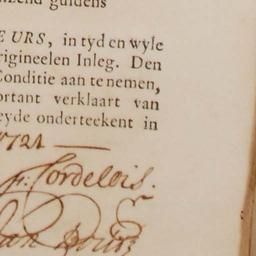 guldens
EURS, in tyd en wyle
rigineelen Inleg. Den
Conditie aan te nemen,
ortant verklaart van
eyde onderteekent in
1721
F: Cordelois.